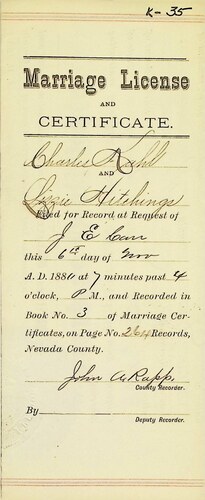 K-35
Marriage License
AND
CERTIFICATE.
Charles Kahll
AND
Lizzie Hitchings
Filed for Record at Request of
J E Carr
this 6th day of Nov
A. D. 1886 at 7 minutes past 4
o'clock, P M., and Recorded in
Book No. 3 of Marriage Cer-
tificates, on Page No. 264 Records,
Nevada County.
John A Rapp.
County Recorder.
By
Deputy Recorder.